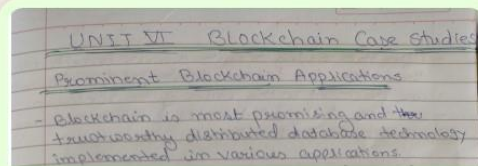 UNIT VI Blockchain Case Studies
Prominent Blockchain Applications
- Blockchain is most promising and
trustworthy distributed database technology
implemented in various applications.